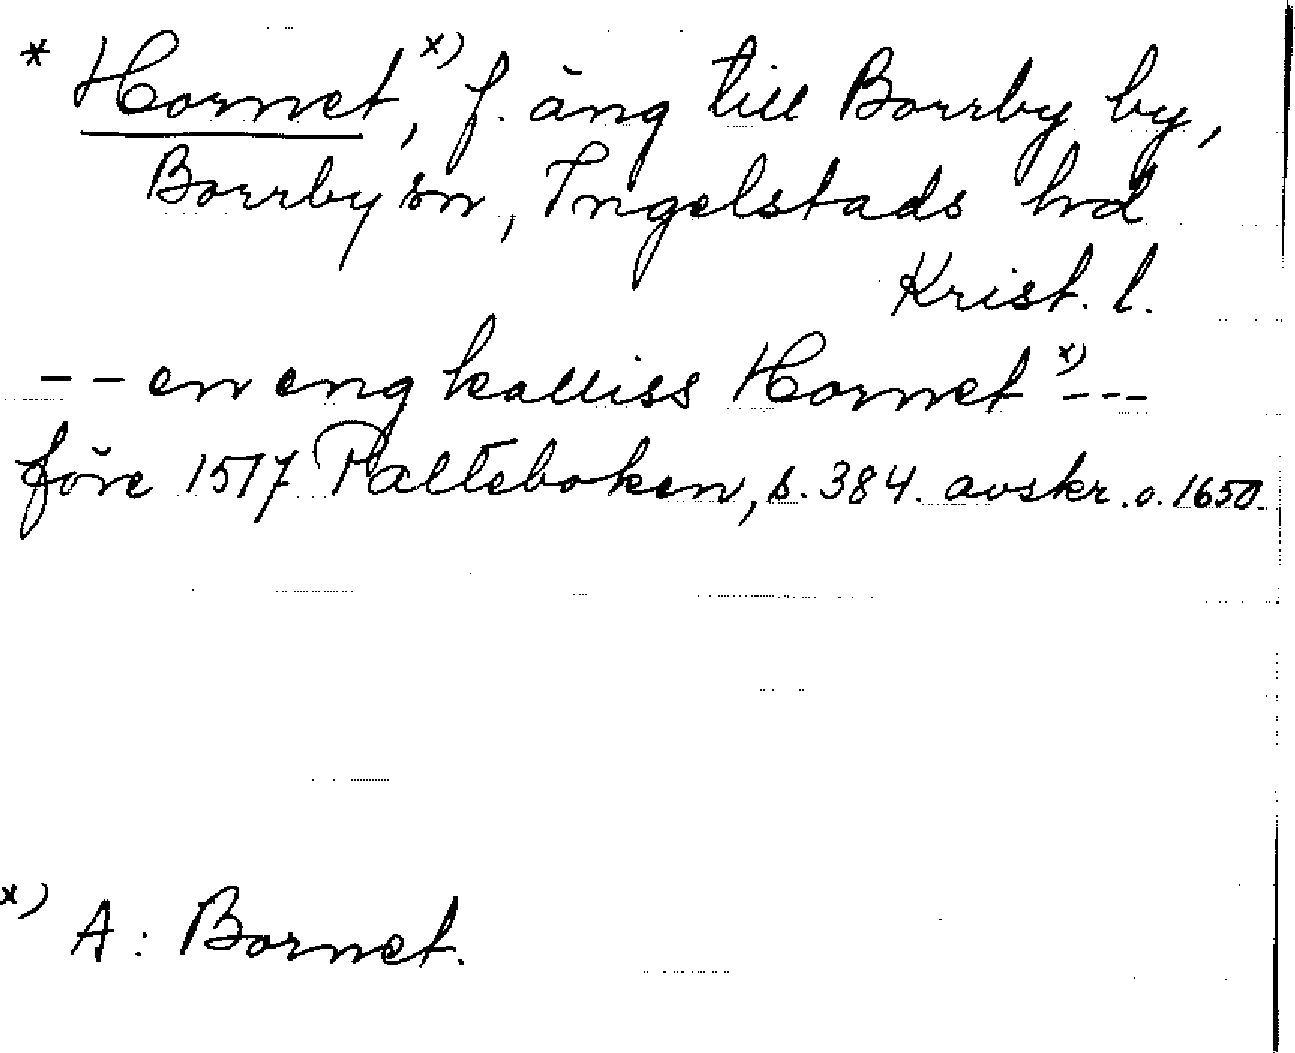 * Hornet,x) f. äng till Borrby by,
Borrby sn, Ingelstads hd
Krist. l.
-- en eng kalliss Hornet x) ---
före 1517 Palteboken, s. 384. avskr. o. 1650.
x) A: Bornet.